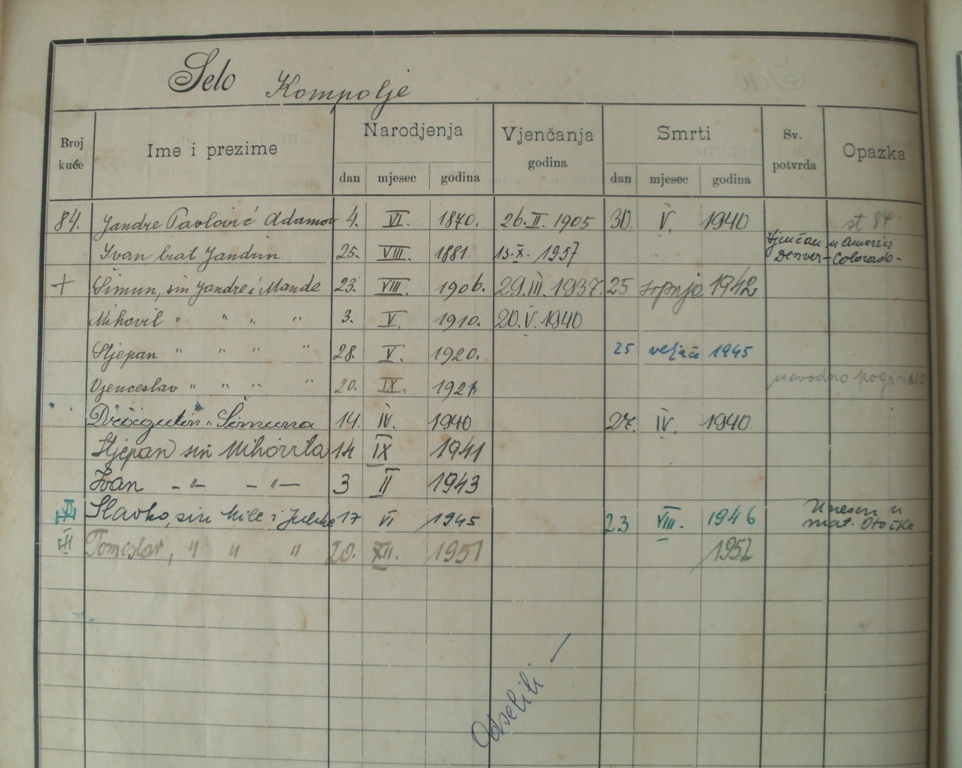 Selo Kompolje
Broj kuće Ime i prezime Narodjenja Vjenčanja godina Smrti Sv. potvrda Opazka
dan mjesec godina dan mjesec godina
84. Jandre Pavlović Adamov 4. VI. 1870. 26. II. 1905 30. V. 1940 st 84
Ivan brat Jandrin 25. VIII. 1881. 13. X. 1957 Vjenčan u Americi Denver-Colorado-
+ Šimun, sin Jandre i Mande 23. VIII. 1906. 29. III. 1937. 25 srpnja 1942
Mihovil " " " " 3. V. 1910. 20. V. 1940
Stjepan " " " " 28. V. 1920. 25 veljače 1945
Vjenceslav " " " " 20. IX. navodno poginuo
Dragutin " Šimuna 14. IV. 1940 27. IV. 1940
Stjepan sin Mihovila 14 IX 1941
Ivan -"- -"- 3 II 1943
Slavko, sin Mile i 17 VI 1945 23 VIII. 1946 Unesen u mat. Otočke
Tomislav, " " " 20. XII. 1951 1952
Odselili –